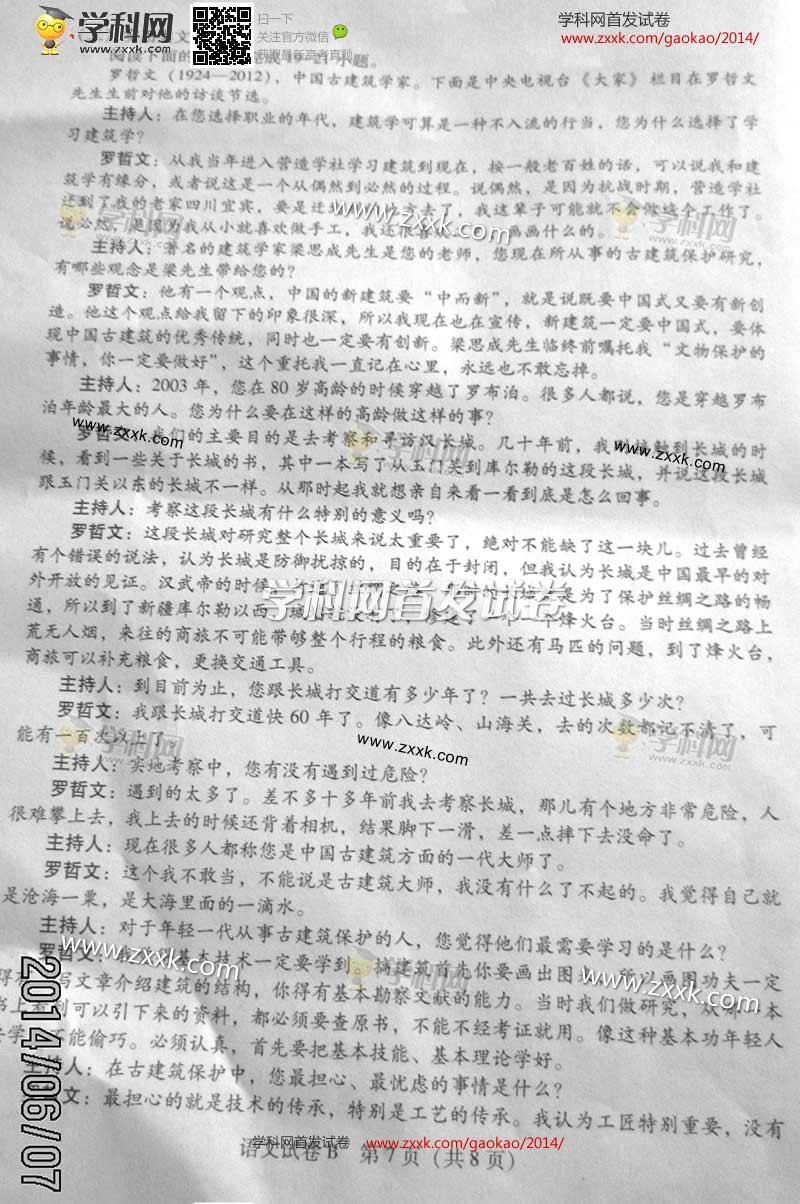 学科网
www.zxxk.com
扫一下
关注官方微信
获取最新高考真题
学科网首发试卷
www.zxxk.com/gaokao/2014/
阅读下面的 19—21小题。
罗哲文（1924—2012），中国古建筑学家。下面是中央电视台《大家》栏目在罗哲文
先生生前对他的访谈节选。
主持人：在您选择职业的年代，建筑学可算是一种不入流的行当，您为什么选择了学
习建筑学？
罗哲文：从我当年进入营造学社学习建筑到现在，按一般老百姓的话，可以说我和建
筑学有缘分，或者说这是一个从偶然到必然的过程。说偶然，是因为抗战时期，营造学社
迁到了我的老家四川宜宾，要是迁 方去了，我这辈子可能就不会做这个工作了。
说必然，是因为我从小就喜欢做手工，我还很喜欢 画画什么的。
主持人：著名的建筑学家梁思成先生是您的老师，您现在所从事的古建筑保护研究，
有哪些观念是梁先生带给您的？
罗哲文：他有一个观点，中国的新建筑要“中而新”，就是说既要中国式又要有新创
造。他这个观点给我留下的印象很深，所以我现在也在宣传，新建筑一定要中国式，要体
现中国古建筑的优秀传统，同时也一定要有创新。梁思成先生临终前嘱托我“文物保护的
事情，你一定要做好”，这个重托我一直记在心里，永远也不敢忘掉。
主持人：2003 年，您在 80 岁高龄的时候穿越了罗布泊。很多人都说，您是穿越罗布
泊年龄最大的人。您为什么要在这样的高龄做这样的事？
罗哲文：我们的主要目的是去考察和寻访汉长城。几十年前，我 接触到长城的时
候，看到一些关于长城的书，其中一本写了从玉门关到库尔勒的这段长城，并说这段长城
跟玉门关以东的长城不一样。从那时起我就想亲自来看一看到底是怎么回事。
主持人：考察这段长城有什么特别的意义吗？
罗哲文：这段长城对研究整个长城来说太重要了，绝对不能缺了这一块儿。过去曾经
有个错误的说法，认为长城是防御扰掠的，目的在于封闭，但我认为长城是中国最早的对
外开放的见证。汉武帝的时候 是为了保护丝绸之路的畅
通，所以到了新疆库尔勒以西 城 个烽火台。当时丝绸之路上
荒无人烟，来往的商旅不可能带够整个行程的粮食。此外还有马匹的问题，到了烽火台，
商旅可以补充粮食，更换交通工具。
主持人：到目前为止，您跟长城打交道有多少年了？一共去过长城多少次？
罗哲文：我跟长城打交道快 60 年了。像八达岭、山海关，去的次数都记不清了，可
能有一百次以上了
主持人：实地考察中，您有没有遇到过危险？
罗哲文：遇到的太多了。差不多十多年前我去考察长城，那儿有个地方非常危险，人
很难攀上去，我上去的时候还背着相机，结果脚下一滑，差一点摔下去没命了。
主持人：现在很多人都称您是中国古建筑方面的一代大师了。
罗哲文：这个我不敢当，不能说是古建筑大师，我没有什么了不起的。我觉得自己就
是沧海一粟，是大海里面的一滴水。
主持人：对于年轻一代从事古建筑保护的人，您觉得他们最需要学习的是什么？
罗哲文 基本技术一定要学到。搞建筑首先你要画出图 所以画图功夫一定
得 写文章介绍建筑的结构，你得有基本勘察文献的能力。当时我们做研究，从 本
书上看到可以引下来的资料，都必须要查原书，不能不经考证就用。像这种基本功年轻人
去学 不能偷巧。必须认真，首先要把基本技能、基本理论学好。
主持人：在古建筑保护中，您最担心、最忧虑的事情是什么？
文：最担心的就是技术的传承，特别是工艺的传承。我认为工匠特别重要，没有
语文试卷B 第7页（共8页）
学科网首发试卷
www.zxxk.com/gaokao/2014/
2014/06/07